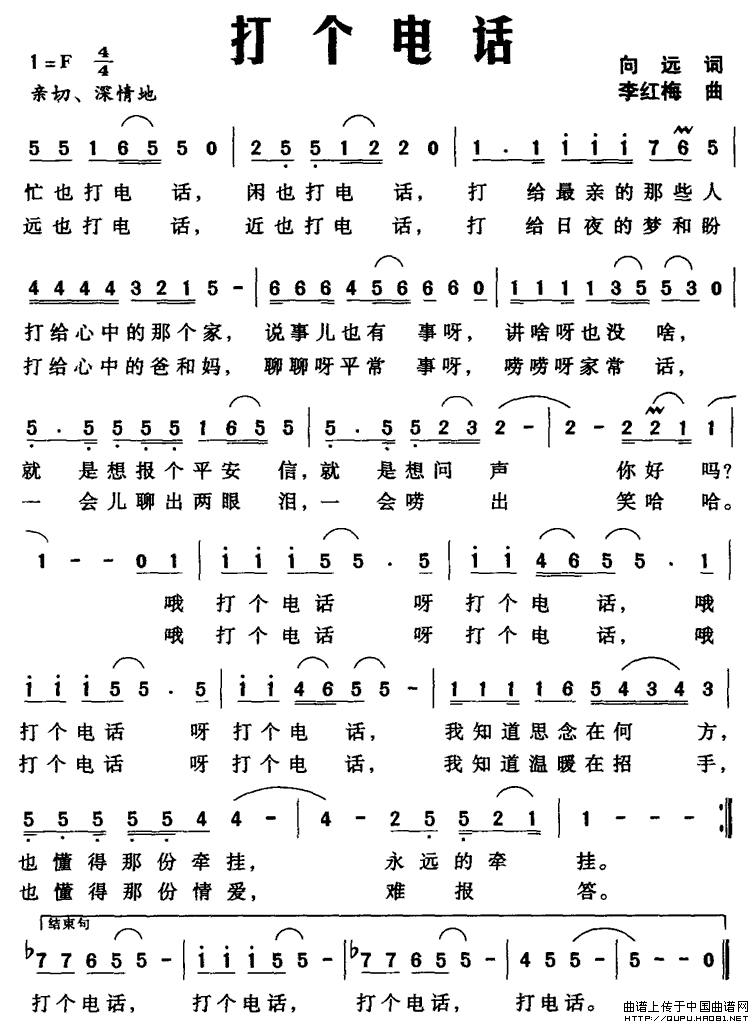 打个电话
1=F 4/4
向远 词
亲切、深情地
李红梅 曲
5 5 1 6 5 5 0 | 2 5 5 1 2 2 0 | 1 . 1 1 1 1 7 6 5 |
忙也打电 话， 闲也打电 话， 打 给最亲的那些人
远也打电 话， 近也打电 话， 打 给日夜的梦和盼
4 4 4 4 3 2 1 5 - | 6 6 6 4 5 6 6 6 0 | 1 1 1 1 3 5 5 3 0 |
打给心中的那个家， 说事儿也有 事呀， 讲啥呀也没 啥，
打给心中的爸和妈， 聊聊呀平常 事呀， 唠唠呀家常 话，
5 . 5 5 5 5 1 6 5 5 | 5 . 5 5 2 3 2 - | 2 - 2 2 1 1 |
就 是想报个平安 信，就 是想问 声 你好 吗？
一 会儿聊出两眼 泪，一 会唠 出 笑哈 哈。
1 - - 0 1 | 1 1 1 5 5 . 5 | 1 1 4 6 5 5 . 1 |
哦 打个电话 呀 打个电 话， 哦
哦 打个电话 呀 打个电 话， 哦
1 1 1 5 5 . 5 | 1 1 4 6 5 5 - | 1 1 1 1 6 5 4 3 4 3 |
打个电话 呀 打个电 话， 我知道思念在何 方，
打个电话 呀 打个电 话， 我知道温暖在招 手，
5 5 5 5 5 4 4 - | 4 - 2 5 5 2 1 | 1 - - - :‖
也懂得那份牵挂， 永远的牵 挂。
也懂得那份情爱， 难 报 答。
结束句
♭7 7 6 5 5 - | 1 1 1 5 5 - | ♭7 7 6 5 5 - | 4 5 5 - | 5 - - 0 ‖
打个电话， 打个电话， 打个电话， 打电话。
曲谱上传于中国曲谱网
HTTP://QUPU.HAO81.NET